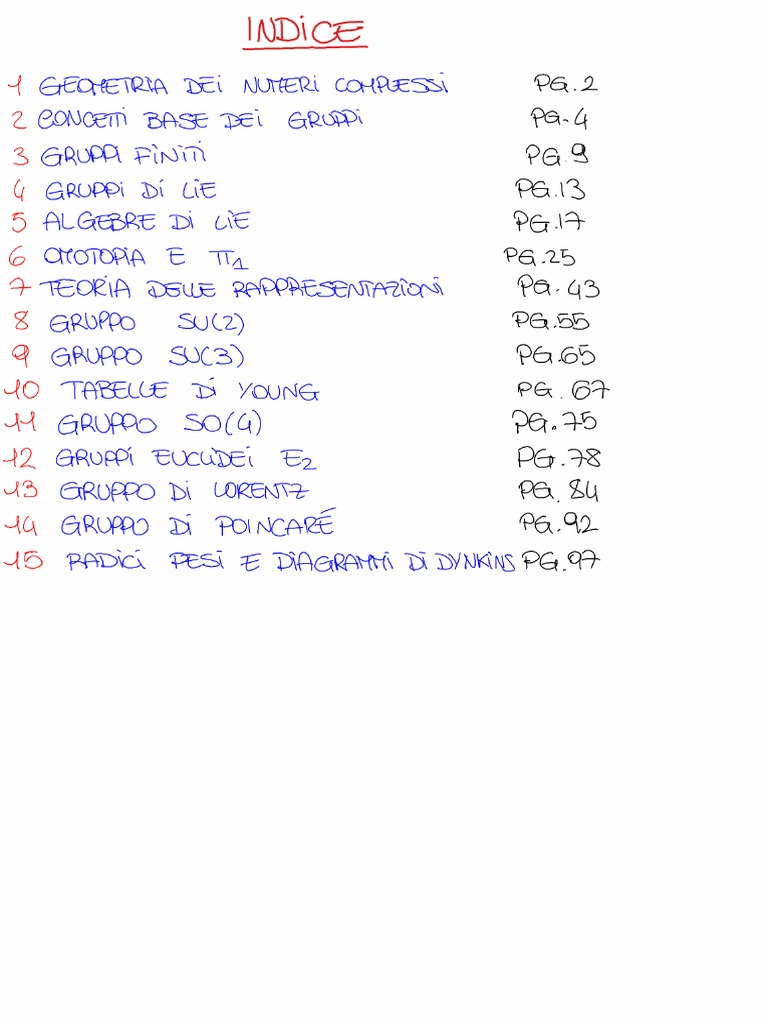 INDICE
1 GEOMETRIA DEI NUMERI COMPLESSI PG.2
2 CONCETTI BASE DEI GRUPPI PG.4
3 GRUPPI FINITI PG.9
4 GRUPPI DI LIE PG.13
5 ALGEBRE DI LIE PG.17
6 OMOTOPIA E π1 PG.25
7 TEORIA DELLE RAPPRESENTAZIONI PG.43
8 GRUPPO SU(2) PG.55
9 GRUPPO SU(3) PG.65
10 TABELLE DI YOUNG PG.67
11 GRUPPO SO(4) PG.75
12 GRUPPI EUCLIDEI E2 PG.78
13 GRUPPO DI LORENTZ PG.84
14 GRUPPO DI POINCARÉ PG.92
15 RADICI PESI E DIAGRAMMI DI DYNKINS PG.97